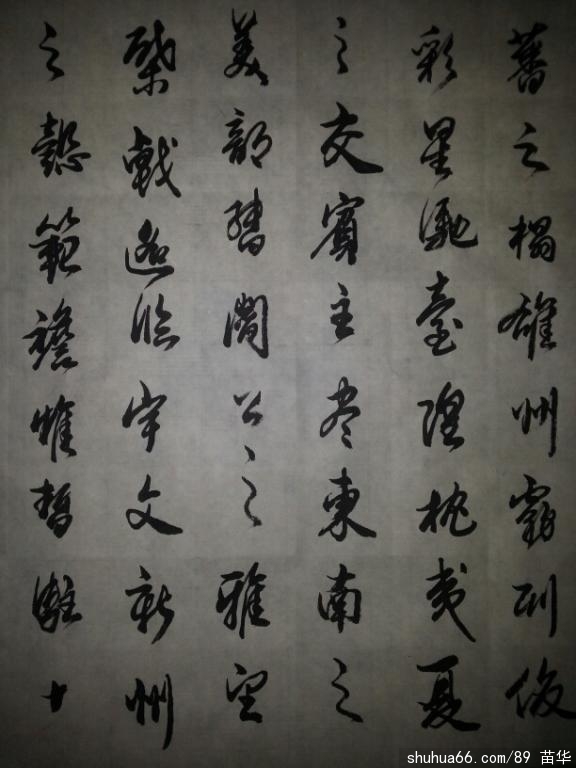 蕃之榻雄州霧列俊
彩星馳臺隍枕夷夏
之交賓主尽東南之
美都督閻公之雅望
棨戟遙臨宇文新州
之懿範襜帷暫駐十
shuhua66.com/89 苗华